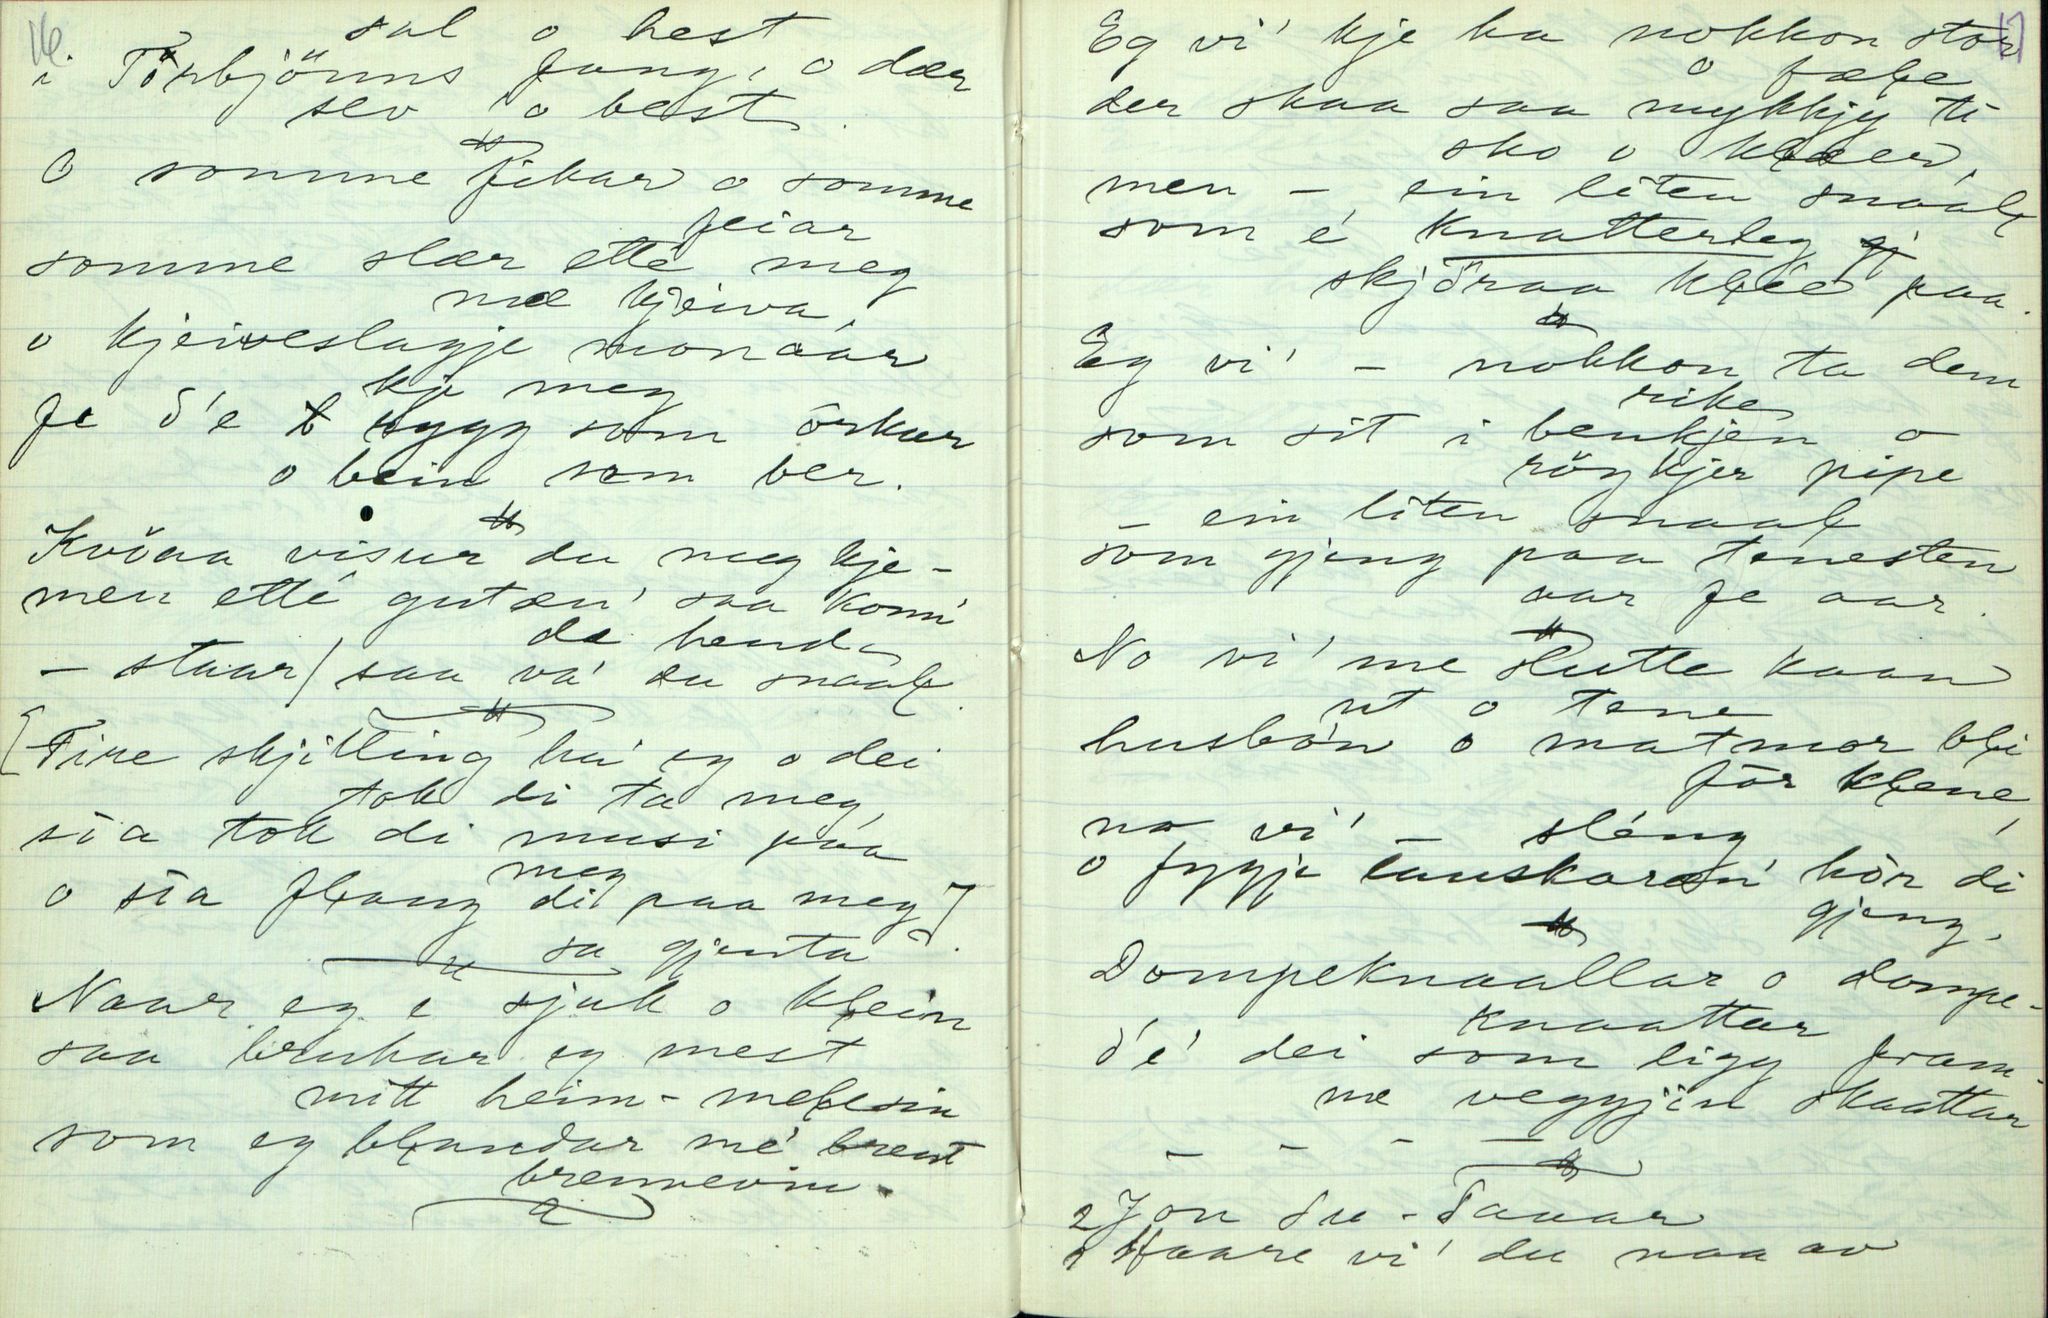 16.
sal o hest
i Torbjönns fang, o dær
sev o best.
O somme fikar o somme
feiar
somme slær ette meg
mæ kjeiva,
o kjeiveslagje monáar
kje meg
fe d'e rygg som örkar
o bein som ber.
Kvöaa visur du meg kje -
men etté gutæn' saa kom'
da hend
- staar/ saa va' du snaaḷ.
[Fire skjilling ha' eg o dei
tok di ta meg,
sia tok di musi páa
meg
o sia fḷaang di paa meg]
sa gjenta.
Naar eg e sjuk o kḷein
saa brukar eg mest
mitt heim-meḷesin
som eg bḷandar mé brent
brennevin.
17
Eg vi' kje ha nokkon stor
o fæḷe
der skaa saa mykkjy ti
sko o kḷæer,
men - ein liten snaaḷ
som é knatterleg
skjöraa kḷéé paa.
Eg vi' - nokkon ta dem
rike
som sit i benkjen o
röykjer pipe
- ein liten snaaḷ
som gjeng paa tenesten
aar fe aar.
No vi' me slutte kaar
ut o tene
husbón o matmor bḷi
för kḷené,
no vi' - sléng
o fygje lauskaræn' hör di
gjeng.
Dompeknaallar o dompe-
knaattar
d'é' dei som ligg fram-
me veggjin skaattar
- - - -
2 Jon Su-Sauar
1 Haare vi' du naa av